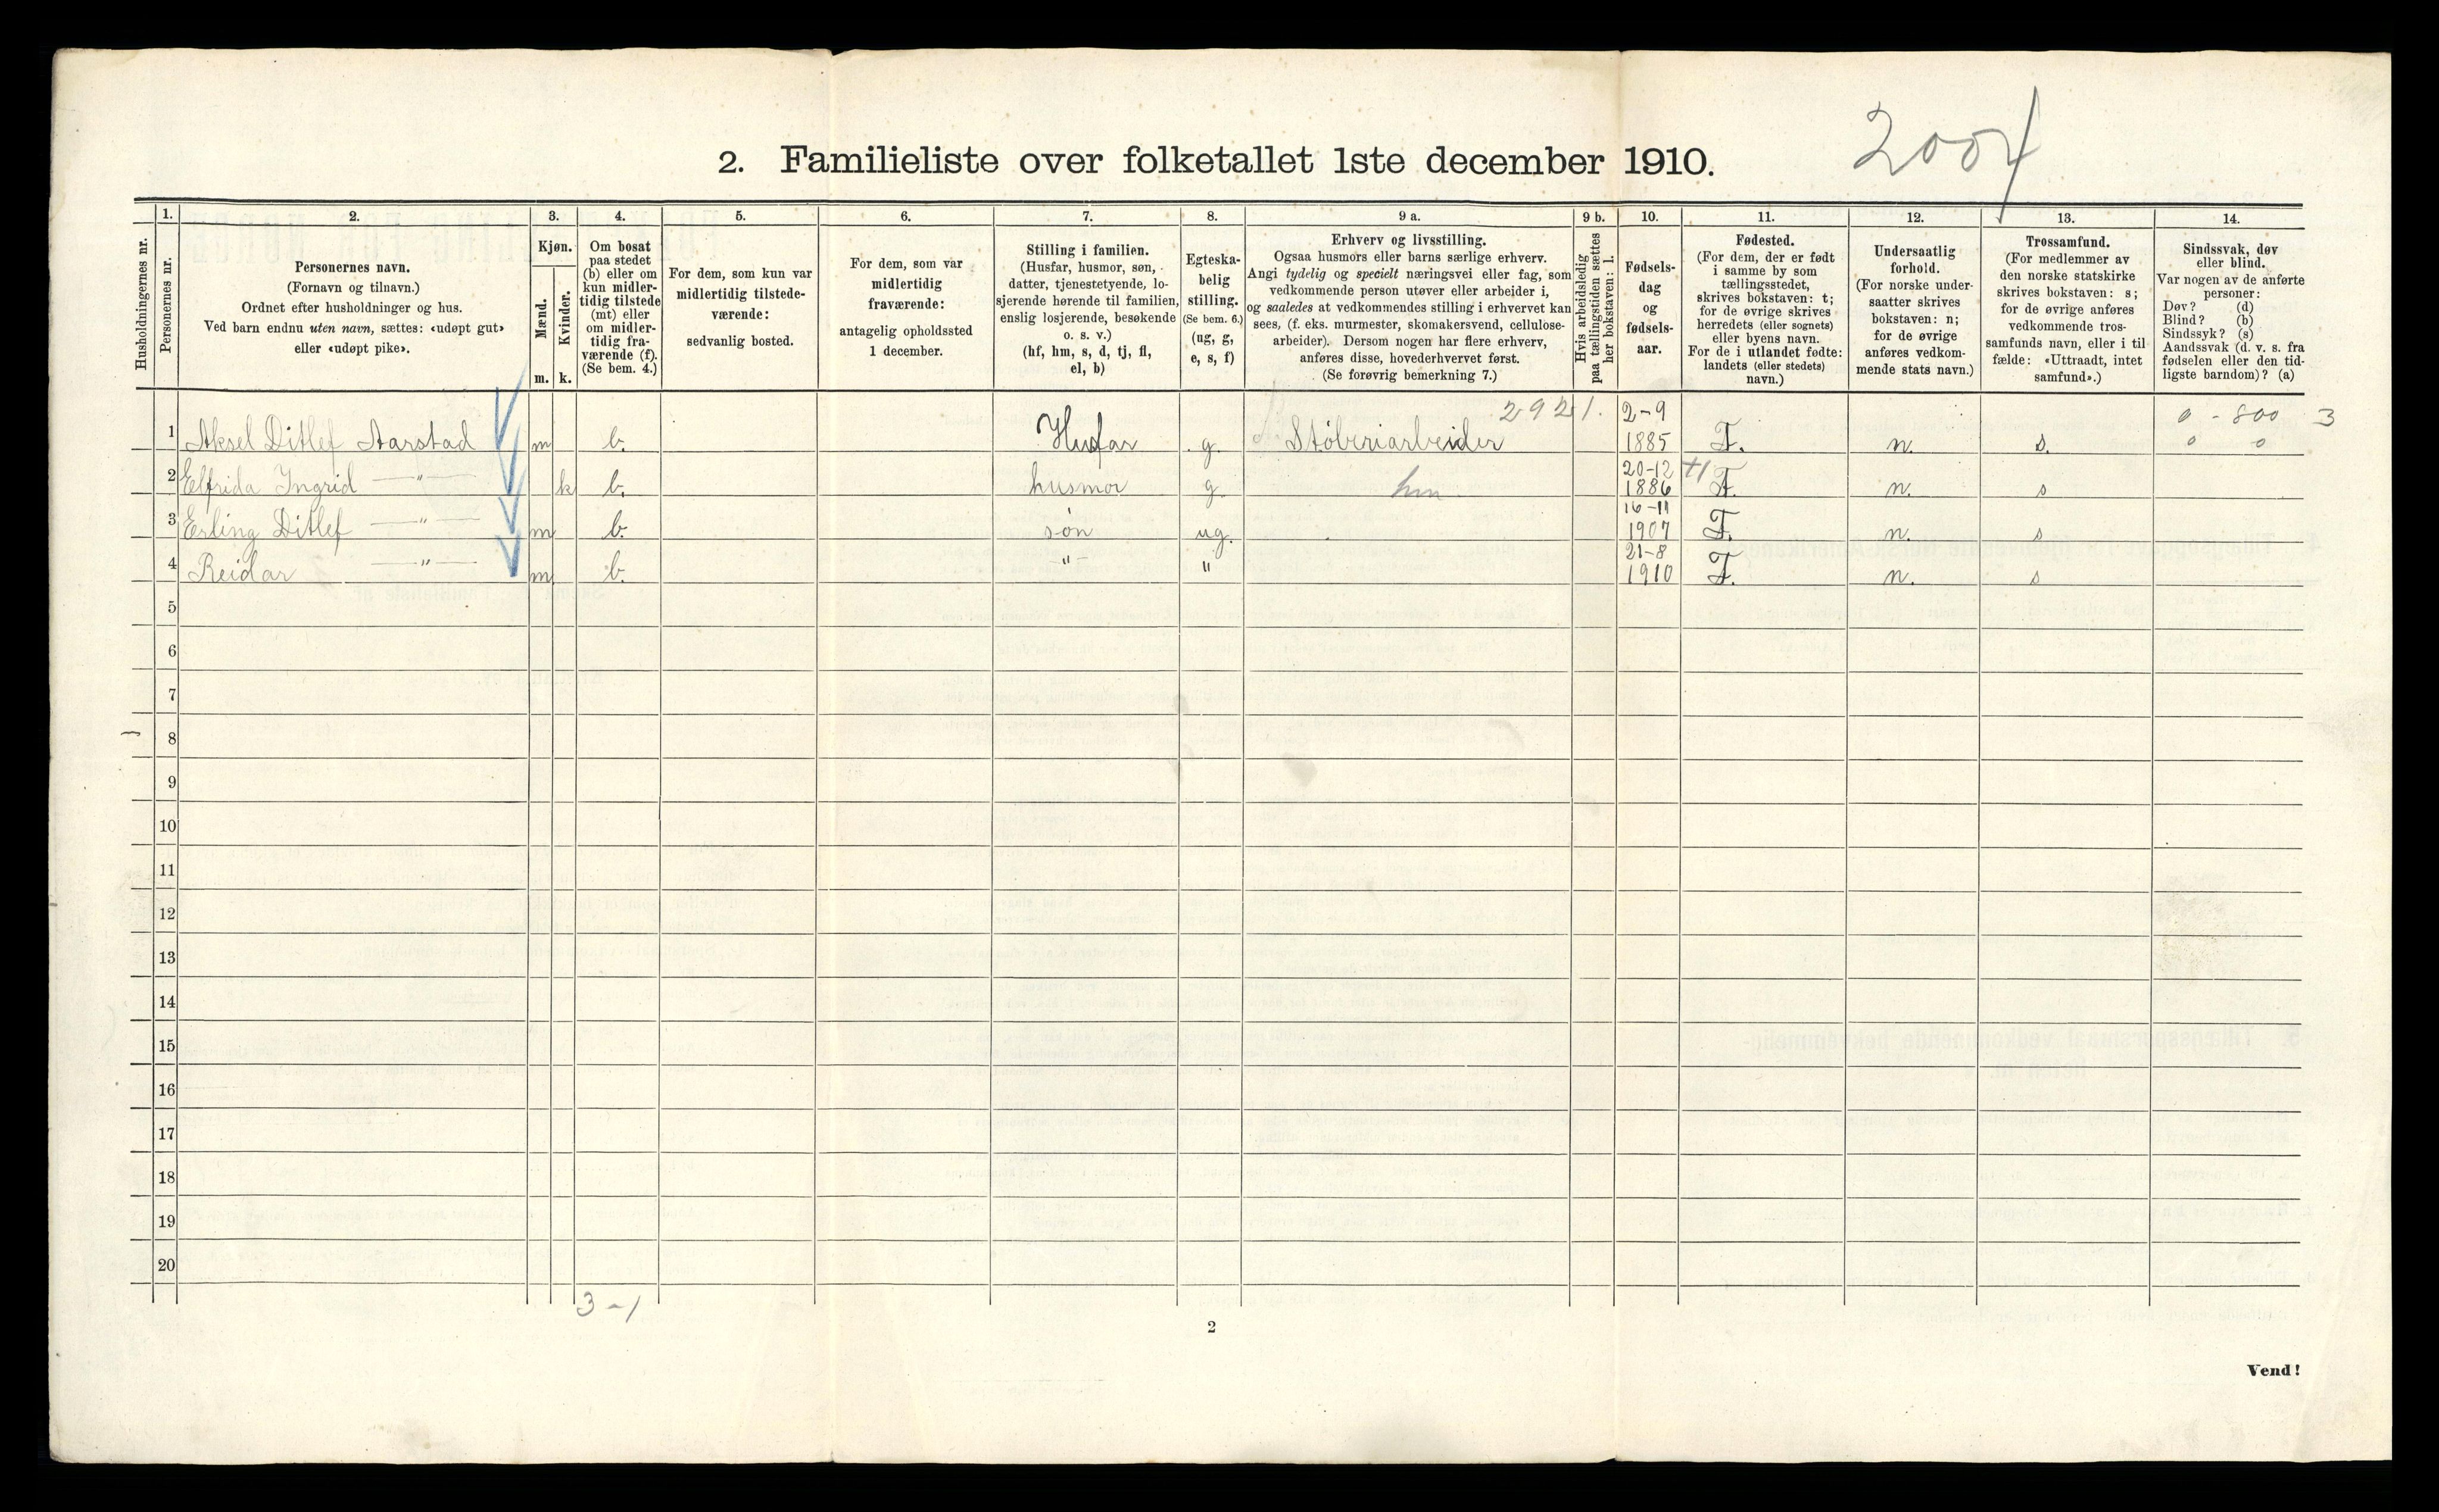 2004
2. Familieliste over folketallet 1ste december 1910.
Husholdningernes nr.
1. Personernes nr.
2. Personernes navn.
(Fornavn og tilnavn.)
Ordnet efter husholdninger og hus.
Ved barn endnu uten navn, sættes: «udøpt gut»
eller «udøpt pike».
3. Kjøn.
Mænd. m.
Kvinder. k.
4. Om bosat
paa stedet
(b) eller om
kun midler-
tidig tilstede
(mt) eller
om midler-
tidig fra-
værende (f).
(Se bem. 4.)
5. For dem, som kun var
midlertidig tilstede-
værende:
sedvanlig bosted.
6. For dem, som var
midlertidig
fraværende:
antagelig opholdssted
1 december.
7. Stilling i familien.
(Husfar, husmor, søn,
datter, tjenestetyende, lo-
sjerende hørende til familien,
enslig losjerende, besøkende
o. s. v.)
(hf, hm, s, d, tj, fl,
el, b)
8. Egteska-
belig
stilling.
(Se bem. 6.)
(ug, g,
e, s, f)
9 a. Erhverv og livsstilling.
Ogsaa husmors eller barns særlige erhverv.
Angi tydelig og specielt næringsvei eller fag, som
vedkommende person utøver eller arbeider i,
og saaledes at vedkommendes stilling i erhvervet kan
sees, (f. eks. murmester, skomakersvend, cellulose-
arbeider). Dersom nogen har flere erhverv,
anføres disse, hovederhvervet først.
(Se forøvrig bemerkning 7.)
9 b. Hvis arbeidsledig
paa tællingstiden sættes
her bokstaven: l.
10. Fødsels-
dag
og
fødsels-
aar.
11. Fødested.
(For dem, der er født
i samme by som
tællingsstedet,
skrives bokstaven: t;
for de øvrige skrives
herredets (eller sognets)
eller byens navn.
For de i utlandet fødte:
landets (eller stedets)
navn.)
12. Undersaatlig
forhold.
(For norske under-
saatter skrives
bokstaven: n;
for de øvrige
anføres vedkom-
mende stats navn.)
13. Trossamfund.
(For medlemmer av
den norske statskirke
skrives bokstaven: s;
for de øvrige anføres
vedkommende tros-
samfunds navn, eller i til-
fælde: «Uttraadt, intet
samfund».)
14. Sindssvak, døv
eller blind.
Var nogen av de anførte
personer:
Døv? (d)
Blind? (b)
Sindssyk? (s)
Aandssvak (d. v. s. fra
fødselen eller den tid-
ligste barndom)? (a)
2921. 2-9 0 - 800 3
1 Aksel Ditlef Aarstad m b. Husfar g. Støberiarbeider 1885 T. n. s. 0 0
20-12
2 Elfrida Ingrid —"— k b. husmor g. hm 1886 T. n. s
16-11
3 Erling Ditlef —"— m b. søn ug. 1907 T. n. s
21-8
4 Reidar —"— m b. " " 1910 T. n. s
5
6
7
8
9
10
11
12
13
14
15
16
17
18
19
20
3-1
2
Vend!